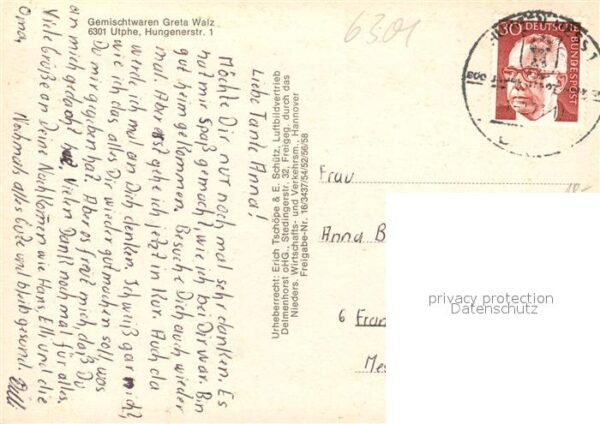 Gemischtwaren Greta Walz
6301 Utphe, Hungenerstr. 1
6301
30 DEUTSCHE
BUNDESPOST
Liebe Tante Anna!
Möchte Dir nur noch mal sehr danken. Es
hat mir Spaß gemacht, wie ich bei Dir war. Bin
gut heim gekommen. Besuche Dich auch wieder
mal. Aber erst gehe ich jetzt in Kur. Auch da
werde ich mal an Dich denken. Ich weiß gar nicht
wie ich das alles Dir wieder gutmachen soll, was
Du mir gegeben hat. Aber es freut mich, daß Du
an mich gedacht hat. Vielen Dank noch mal für alles.
Viele Grüße an Deine Nachkommen wie Hans, Elli und die
Oma. Nochmals alles Gute und bleib gesund.
Urheberrecht: Erich Tschöpe & E. Schütz, Luftbildvertrieb
Delmenhorst oHG., Stedingerstr. 32, Freigeg. durch das
Nieders. Wirtschafts- und Verkehrsm., Hannover
Freigabe-Nr. 16/3437/54/52/56/58
Frau
Anna B
6 Fran
Me
privacy protection
Datenschutz